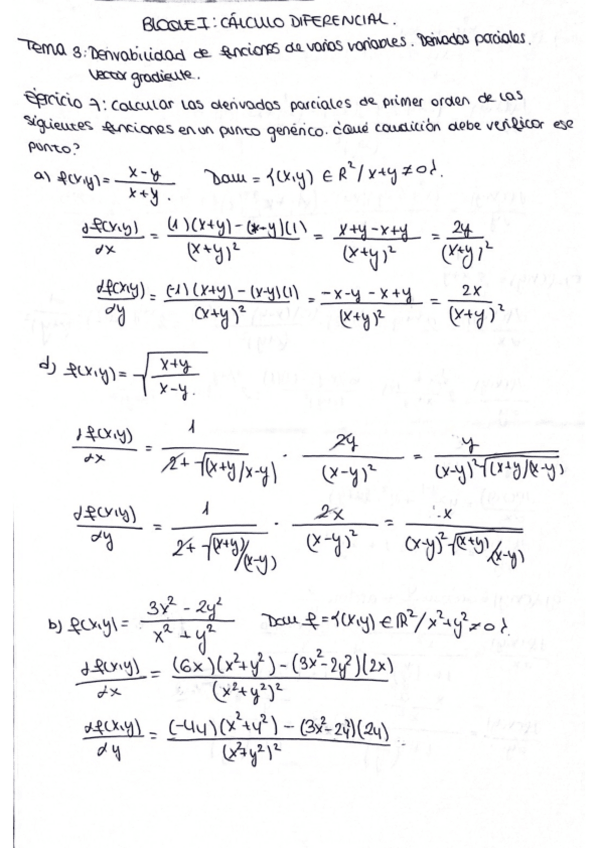 BLOQUE I: CÁLCULO DIFERENCIAL.
Tema 3: Derivabilidad de funciones de varias variables. Derivadas parciales.
Vector gradiente.
Ejercicio 7: Calcular las derivadas parciales de primer orden de las
siguientes funciones en un punto genérico. ¿Qué condición debe verificar ese
punto?
a) f(x,y) = (x-y)/(x+y). Dom = {(x,y) ∈ R²/x+y≠0}.
df(x,y)/dx = ((1)(x+y)-(x-y)(1))/(x+y)² = (x+y-x+y)/(x+y)² = 2y/(x+y)²
df(x,y)/dy = ((-1)(x+y)-(x-y)(1))/(x+y)² = (-x-y-x+y)/(x+y)² = 2x/(x+y)²
d) f(x,y) = √((x+y)/(x-y)).
df(x,y)/dx = 1/(2+√((x+y)/(x-y))) · 2y/(x-y)² = y/((x-y)²√((x+y)/(x-y)))
df(x,y)/dy = 1/(2+√((x+y)/(x-y))) · 2x/(x-y)² = x/((x-y)²√((x+y)/(x-y)))
b) f(x,y) = (3x²-2y²)/(x²+y²) Dom f = {(x,y) ∈ R²/x²+y²≠0}.
df(x,y)/dx = ((6x)(x²+y²)-(3x²-2y²)(2x))/(x²+y²)²
df(x,y)/dy = ((-4y)(x²+y²)-(3x²-2y²)(2y))/(x²+y²)²